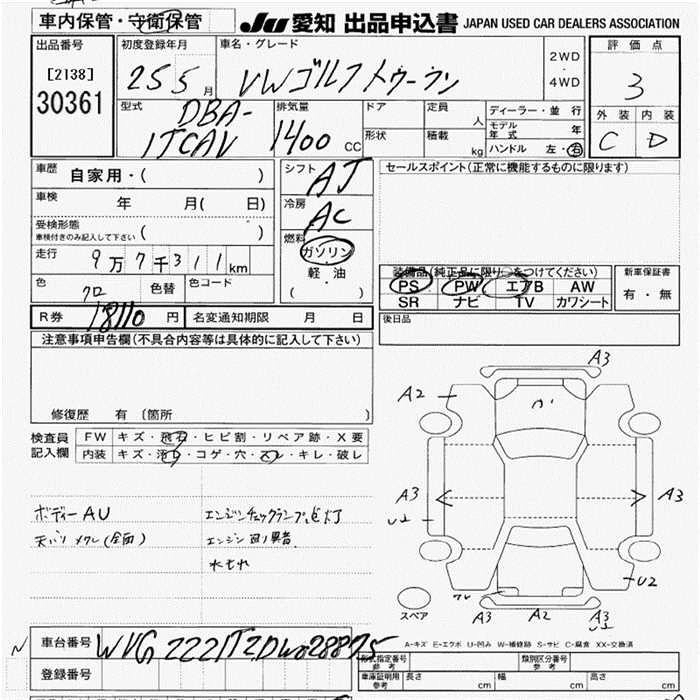 車内保管・守衛保管
JU 愛知 出品申込書 JAPAN USED CAR DEALERS ASSOCIATION
出品番号
[2138]
30361
初度登録年月
25 5 月
車名・グレード
VWゴルフトゥーラン
2WD
・
4WD
評価点
3
外装 内装
C D
型式
DBA-
1TCAV
排気量
1400 CC
ドア
形状
定員
人
積載
kg
ディーラー・並行
モデル年式 年
ハンドル 左・右
車歴 自家用・( )
車検 年 月( 日)
受検形態
車検付きのみ記入して下さい ( )
走行 9万7千311km
色 クロ 色替 色コード
R券 18110 円 名変通知期限 月 日
シフト AT
冷房 AC
燃料
ガソリン
・
軽油
( )
セールスポイント(正常に機能するものに限ります)
装備品(純正品に限り○をつけてください)
PS PW エアB AW
SR ナビ TV カワシート
新車保証書
有・無
後日品
注意事項申告欄(不具合内容等は具体的に記入して下さい)
修復歴 有 〔箇所 〕
検査員記入欄
FW キズ・飛石・ヒビ割・リペア跡・X要
内装 キズ・汚レ・コゲ・穴・スレ・キレ・破レ
ボディーAU
天バリ メクレ(全面)
エンジンチェックランプ点灯
エンジン回り異音
水もれ
A3
A2
A3
A3
U2
A3
A2
A3
スペア
A-キズ E-エクボ U-凹み W-補修跡 S-サビ C-腐食 XX-交換済
車台番号 WVGZZZ1TZDW028875
登録番号
型式指定番号 参考
類別区分番号 参考
車庫証明用 参考 長さ cm 幅 cm 高さ cm